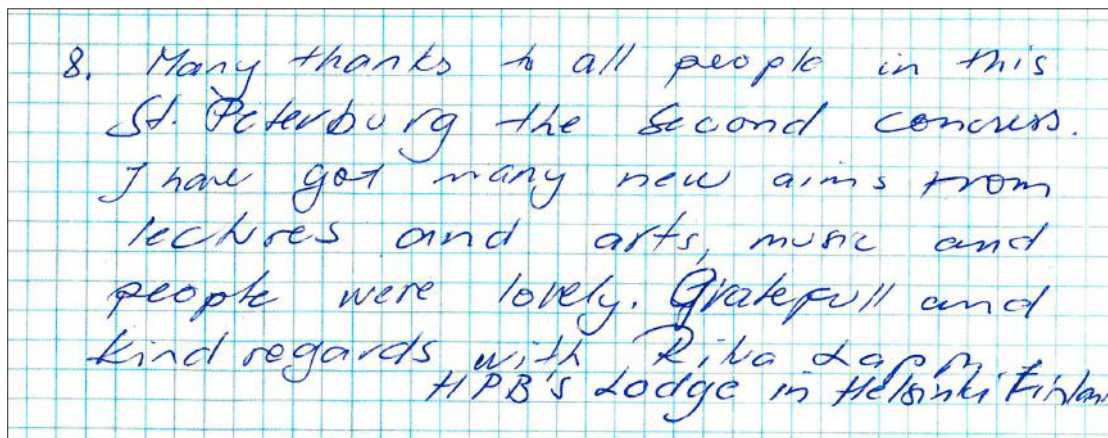 8. Many thanks to all people in this
St. Peterburg the Second concress.
I have got many new aims from
lectures and arts, music and
people were lovely. Gratefull and
kind regards with
HPB's Lodge in Helsinki